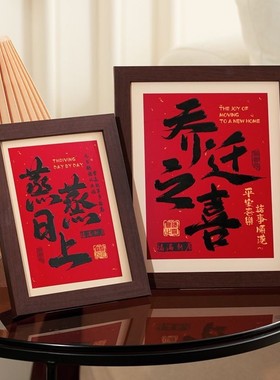 THRIVING
DAY BY DAY
蒸蒸
日上
THE JOY OF
MOVING
TO A NEW HOME
乔迁
之喜
平安喜乐
诸事顺遂